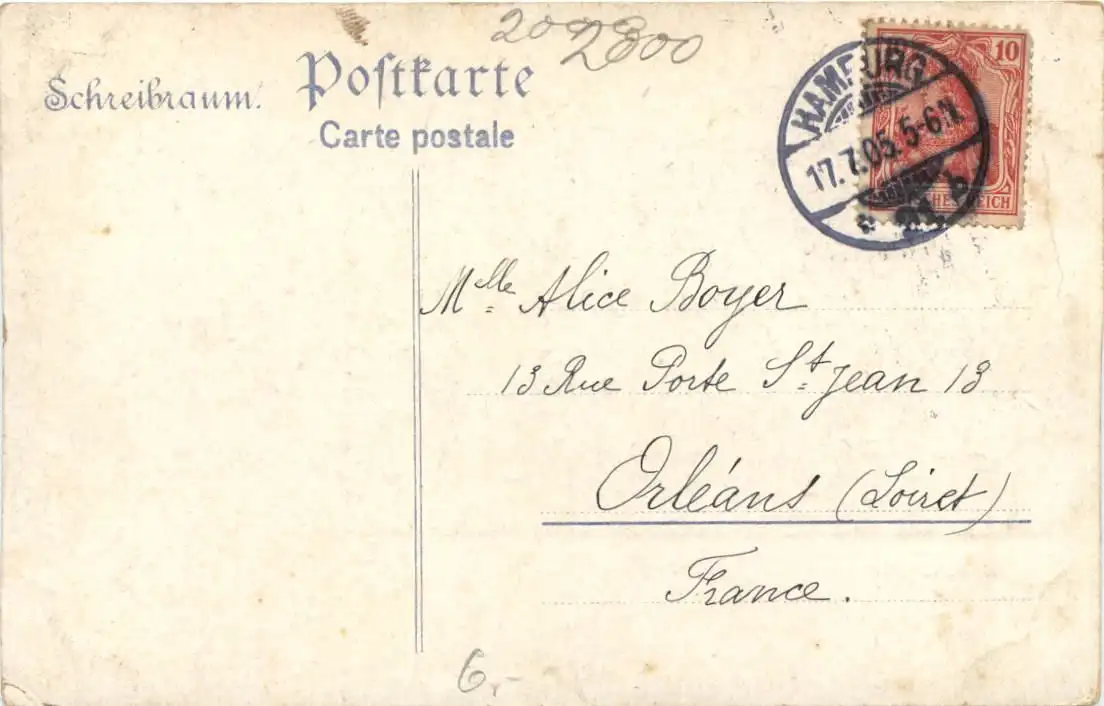 2800
Schreibraum.
Postkarte
Carte postale
10
HAMBURG
17.7.05. 5-6N.
Mlle Alice Boyer
13 Rue Porte St Jean 13
Orléans (Loiret)
France.
6,-